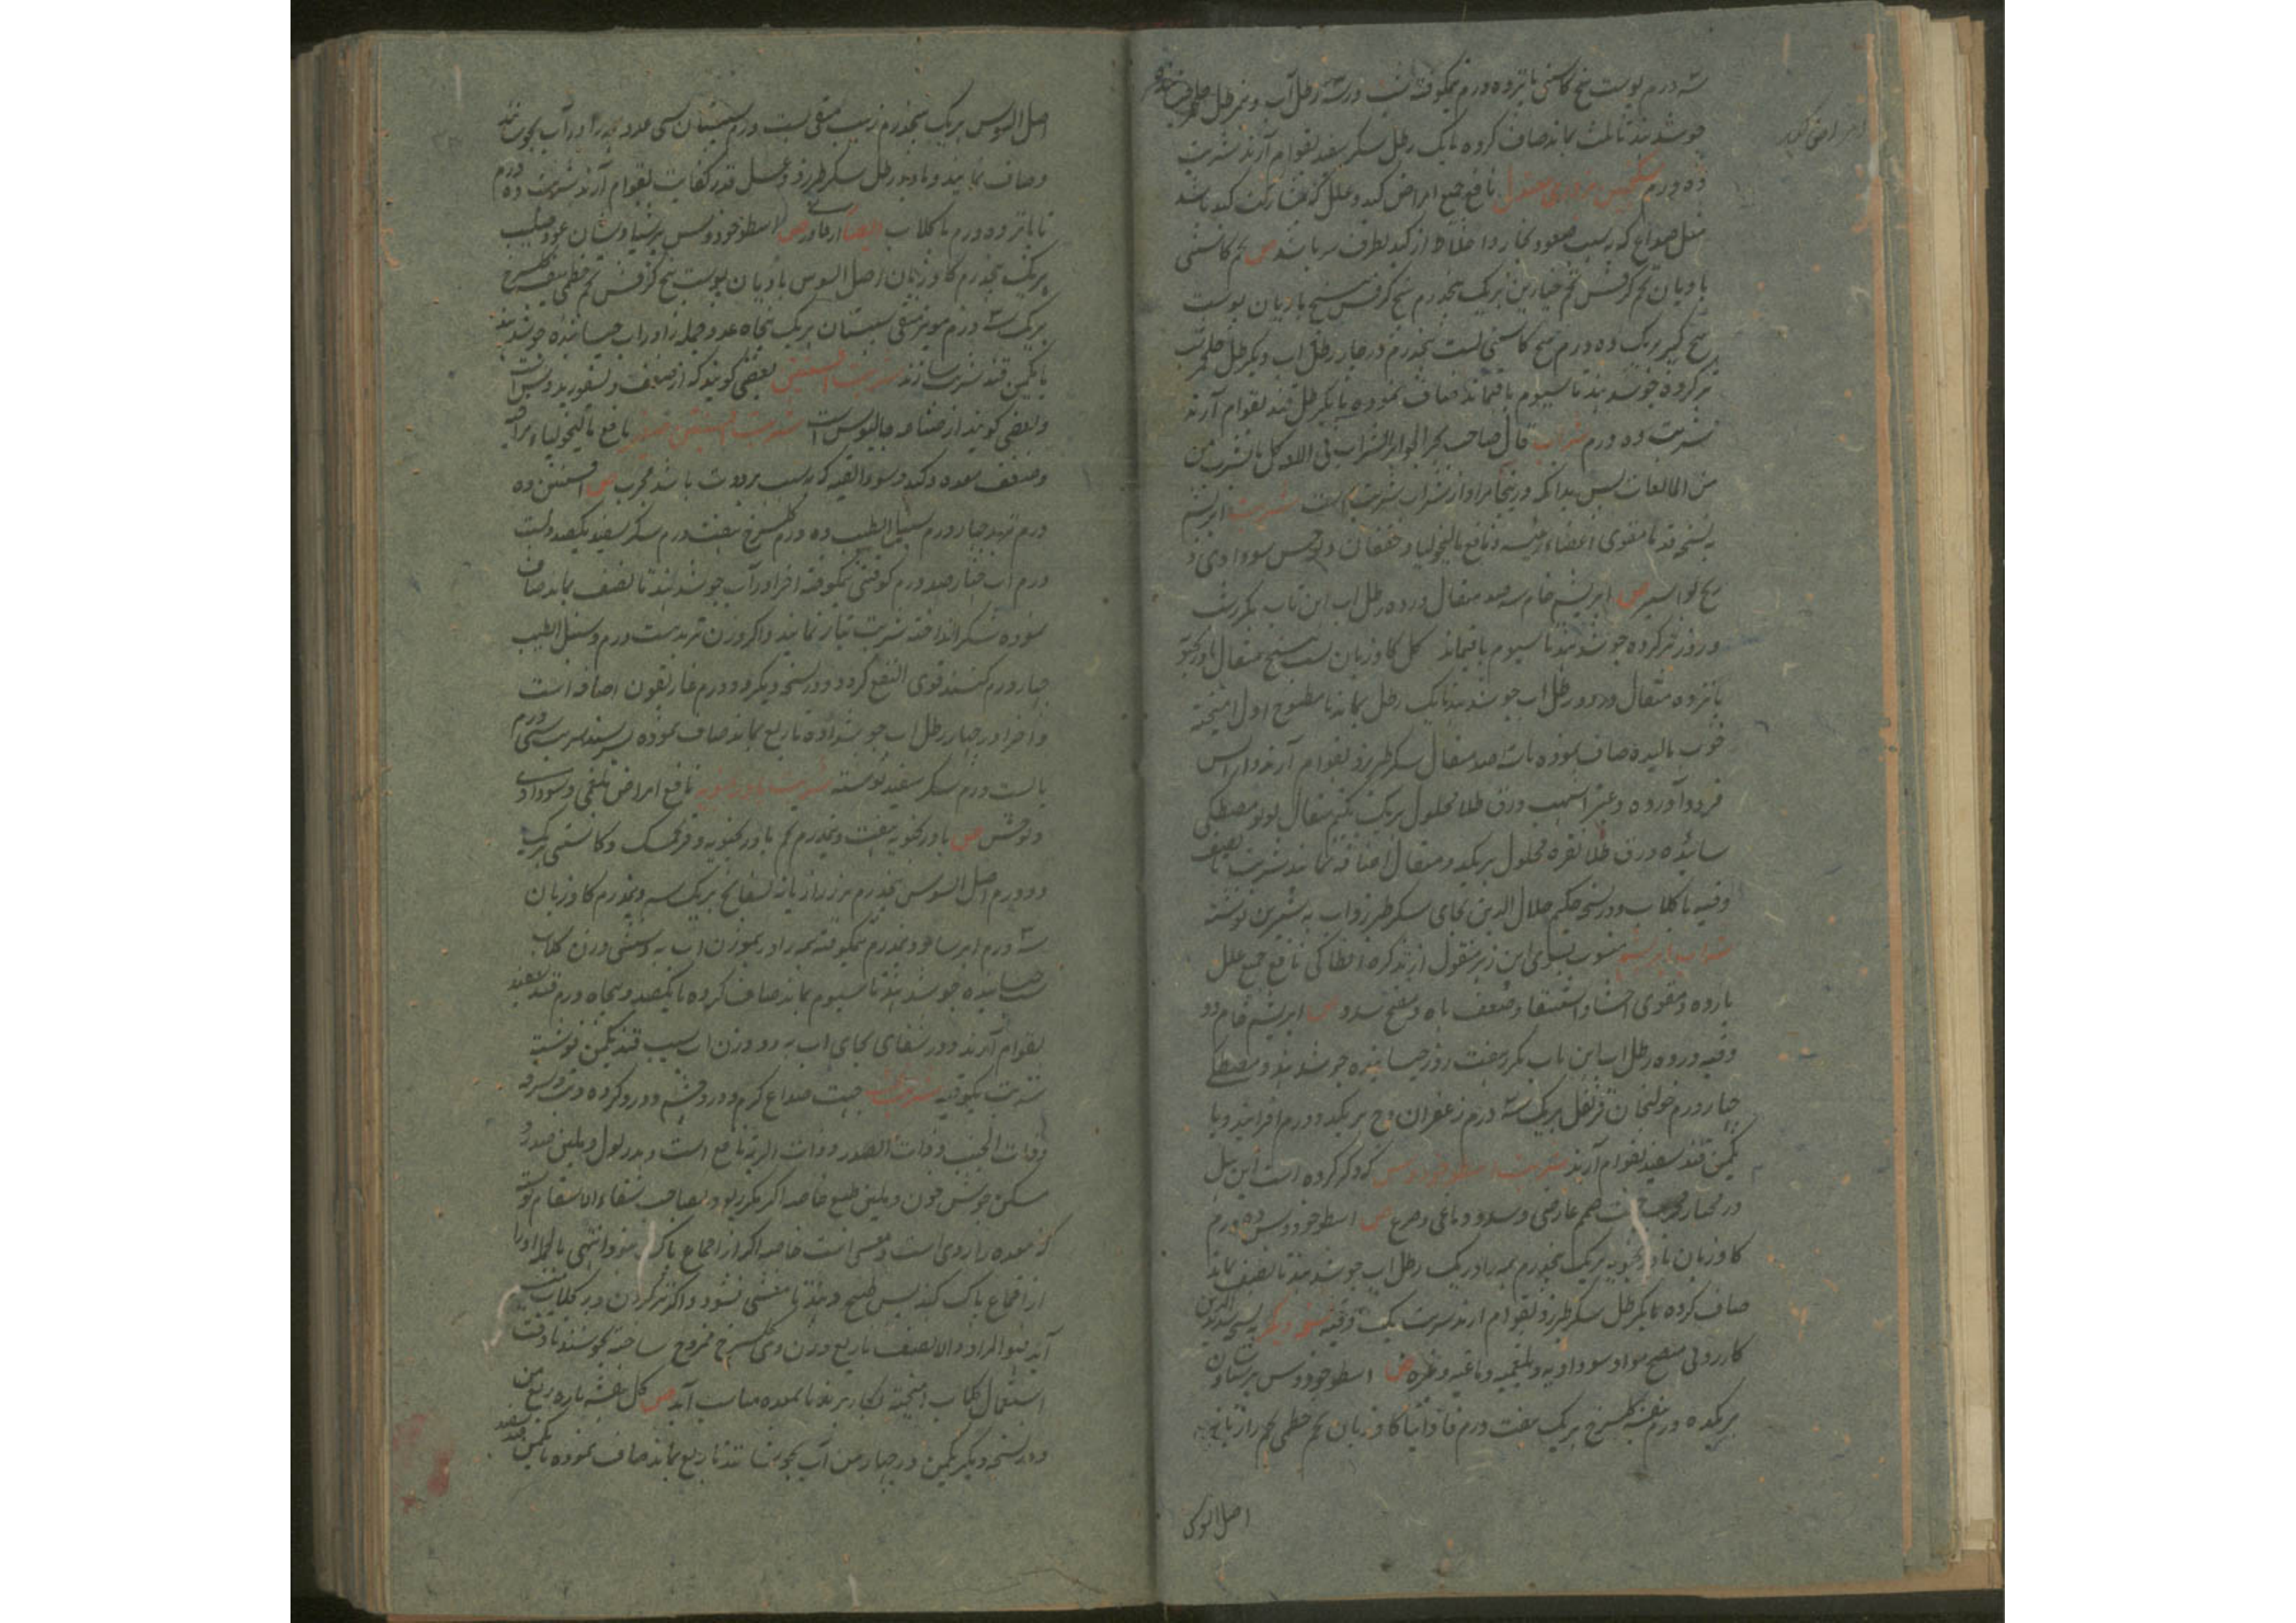 سه درم پوست بیخ کاسنی پانزده درم نیمکوفته شب در سه رطل آب و نیم رطل
جوشانند تا ثلث بماند صاف کرده با یک رطل سکر سفید بقوام آرند شربت
امراض کبد
ده درم سکنجبین بزوری معتدل نافع جمیع امراض کبد و علل که بمشارکت کبد باشد
مثل صداع که بسبب صعود بخار و اخلاط از کبد بطرف سر باشد ص تخم کاسنی
بادیان تخم کرفس تخم خیارین هریک پنجدرم بیخ کرفس بیخ بادیان پوست
بیخ کبر هریک ده درم بیخ کاسنی بست پنجدرم در چار رطل آب و یکرطل سرکه شب
تر کرده جوشانند تا سیوم باقیماند صاف نموده با یکرطل قند بقوام آرند
شربت ده درم شراب قال صاحب بحر الجواهر الشراب فی اللغه کل ما یشرب من
من المایعات پس بدانکه درینجا مراد از شراب شربت است شربت ابریشم
بنسخه قدما مقوی اعضاء رئیسه و نافع مالیخولیا و خفقان و توحش سوداوی و
ریح بواسیر ص ابریشم خام سه صد مثقال در ده رطل آب آهن تاب یکشب
و روز تر کرده جوشانند تا سیوم باقیماند گل گاوزبان بست پنج مثقال بادرنجبویه
پانزده مثقال در دو رطل آب جوشانند تا یک رطل بماند با مطبوخ اول آمیخته
خوب مالیده صاف نموده با سه صد مثقال سکر طبرزد بقوام آرند و از آتش
فرود آورده و عنبر اشهب ورق طلا محلول هریک یکنیم مثقال لولو مصطکی
سائیده ورق طلا نقره محلول هریک دو مثقال اضافه نمایند شربت نصف
وقیه با گلاب و در نسخه حکیم جلال الدین بجای سکر طبرزد آب به شیرین نوشته
شراب ابریشم منسوب بسوی ابن زهر منقول از تذکره انطاکی نافع جمیع علل
بارده و مقوی احشا و استسقا و ضعف باه و مفتح سدد ص ابریشم خام دو
وقیه در ده رطل آب آهن تاب یکهفت روز خیسانیده جوشانند و مصطکی
چار درم خولنجان قرنفل هریک سه درم زعفران وج هریک دو درم افزایند و با
یکمن قند سفید بقوام آرند شربت اسطوخودوس که ذکر کرده است ابن هبل
در مختار جهت صمم عارضی و سدد دماغی و صرع ص اسطوخودوس ده درم
گاوزبان بادرنجبویه هریک پنجدرم همه را در یک رطل آب جوشانند تا نصف بماند
صاف کرده با یکرطل سکر طبرزد بقوام آرند شربت یک وقیه نسخه دیگر بنسخه سدید الدین
کازرونی منضج مواد سوداویه و بلغمیه دماغیه و غیره ص اسطوخودوس پرسیاوشان
هریک ده درم بنفشه گلسرخ هریک هفت درم فاوانیا گاوزبان تخم خطمی تخم رازیانه
اصل السوس
اصل السوس هریک پنجدرم زبیب منقی بست درم سپستان سی عدد همه را در آب بجوشانند
و صاف نمایند و با دو رطل سکر طبرزد و عسل قدر کفایت بقوام آرند شربت ده درم
تا پانزده درم با گلاب ایضا ص اسطوخودوس پرسیاوشان عود صلیب
هریک پنجدرم گاوزبان اصل السوس بادیان پوست بیخ کرفس تخم خطمی بنفشه گلسرخ
هریک سه درم مویز منقی سپستان هریک پنجاه عدد جمله را در آب خیسانیده جوشانند
با یکمن قند شربت سازند شربت افسنتین بعضی گویند که از تصنیف دیسقوریدوس است
و بعضی گویند از جالینوس است شربت افسنتین صغیر نافع مالیخولیا مراقیه
و ضعف معده و کبد و سوء القنیه که بسبب برودت باشد مجرب ص افسنتین ده
درم تربد چار درم سنبل الطیب ده درم گلسرخ هفت درم سکر سفید یکصد و بست
درم آب صد درم کوفتنی نیمکوفته اجزا در آب جوشانند تا نصف بماند صاف
نموده سکر انداخته شربت تیار نمایند و اگر وزن تربد بست درم و سنبل الطیب
چار درم کنند قوی النفع گردد و در نسخه دیگر دو درم غاریقون اضافه است
و اجزا در چار رطل آب جوشداده تا ربع بماند صاف نموده شربت سی درم
با بست درم سکر سفید نوشته شربت بادرنجبویه نافع امراض بلغمی و سوداوی
و توحش ص بادرنجبویه هفت و نیمدرم تخم بادرنجبویه و فرنجمشک و کاسنی هریک
دو درم اصل السوس پنجدرم بزر رازیانه بسفایج هریک سه و نیمدرم گاوزبان
سه درم ایرسا دو نیمدرم نیمکوفته همه را در هموزن آب به و مثل وزن گلاب
شب خیسانیده جوشانند تا سیوم بماند صاف کرده با یکصد و پنجاه درم قند سفید
بقوام آرند و در شفائی بجای آب به دو وزن آب سیب قند یکمن نوشته
شربت یکوقیه شربت بنفشه جهت صداع گرم و درد گرده و تب و سرفه
و ذات الجنب و ذات الصدر و ذات الریه نافع است و مدر بول و ملین صدر و
مسکن جوش خون و ملین طبع خاصه اگر مکرر بود و صاحب شفاء الاسقام نوشته
که معده را ردی است و مغثی است خاصه اگر از اقماع پاک نبود انتهی بالجمله او را
از اقماع پاک کنند پس طبخ دهند تا مغثی نشود و اگر تر کردن در گلاب
آید فهو المراد و الا نصف یا ربع وزن وی گلسرخ ممزوج ساخته بجوشند یا وقت
استعمال بگلاب آمیخته بکار برند تا بمعده مناسب آید ص گل بنفشه تازه ربع من
و در نسخه دیگر یکمن در چهار من آب بجوشانند تا ربع بماند صاف نموده با یکمن قند